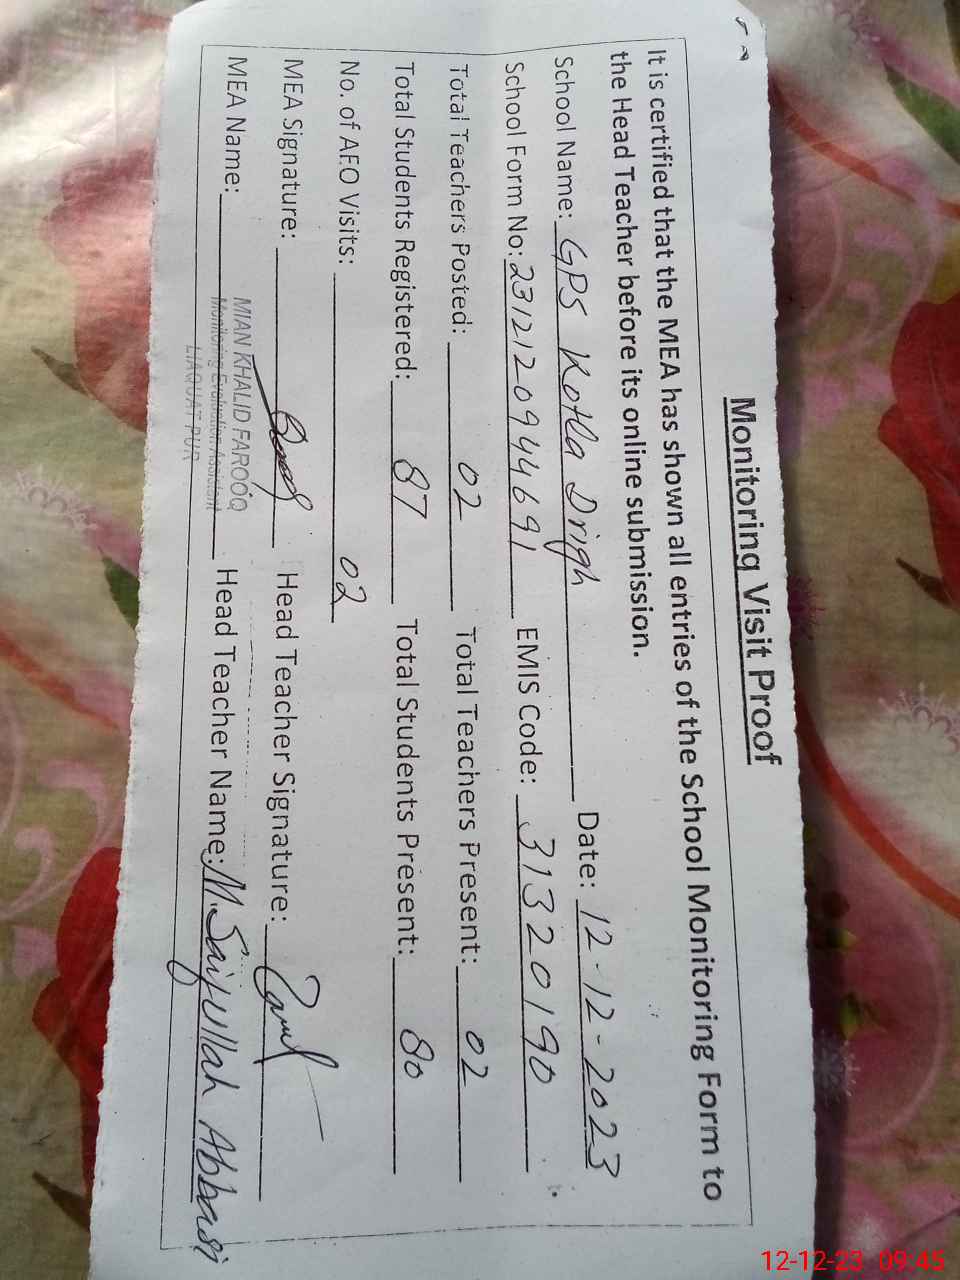 Monitoring Visit Proof
It is certified that the MEA has shown all entries of the School Monitoring Form to
the Head Teacher before its online submission.
School Name: GPS Kotla Drigh Date: 12-12-2023
School Form No: 2312120944691 EMIS Code: 31320190
Total Teachers Posted: 02 Total Teachers Present: 02
Total Students Registered: 87 Total Students Present: 80
No. of AEO Visits: 02
MEA Signature: Head Teacher Signature:
MEA Name: MIAN KHALID FAROOQ Head Teacher Name: M. Saifullah Abbasi
Monitoring Evaluation Assistant
LIAQUAT PUR
12-12-23 09:45